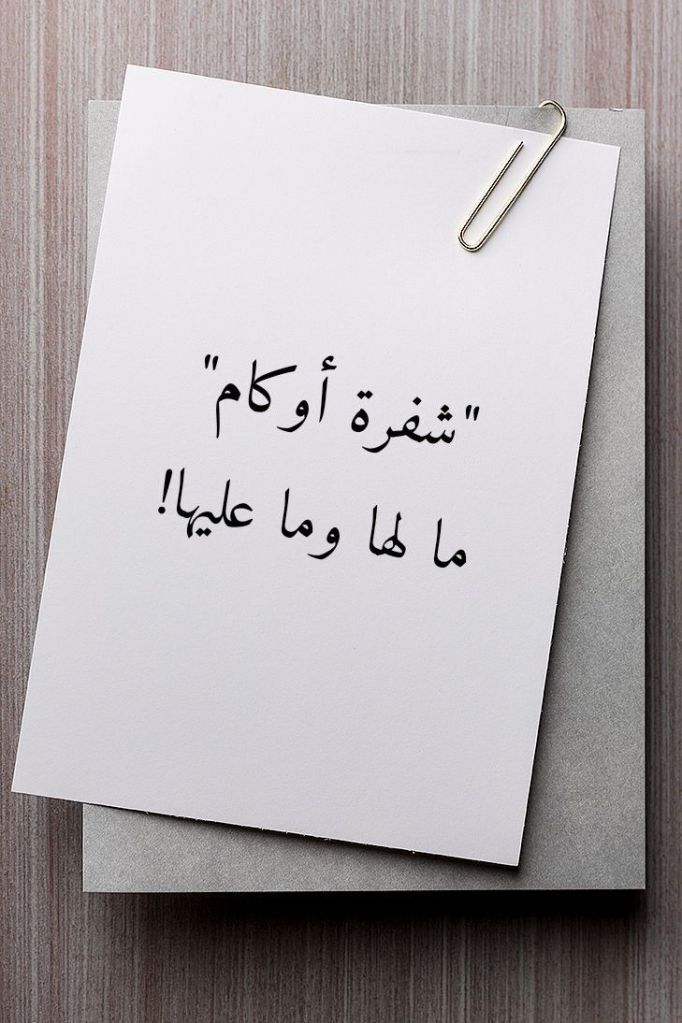 "شفرة أوكام"
ما لها وما عليها!